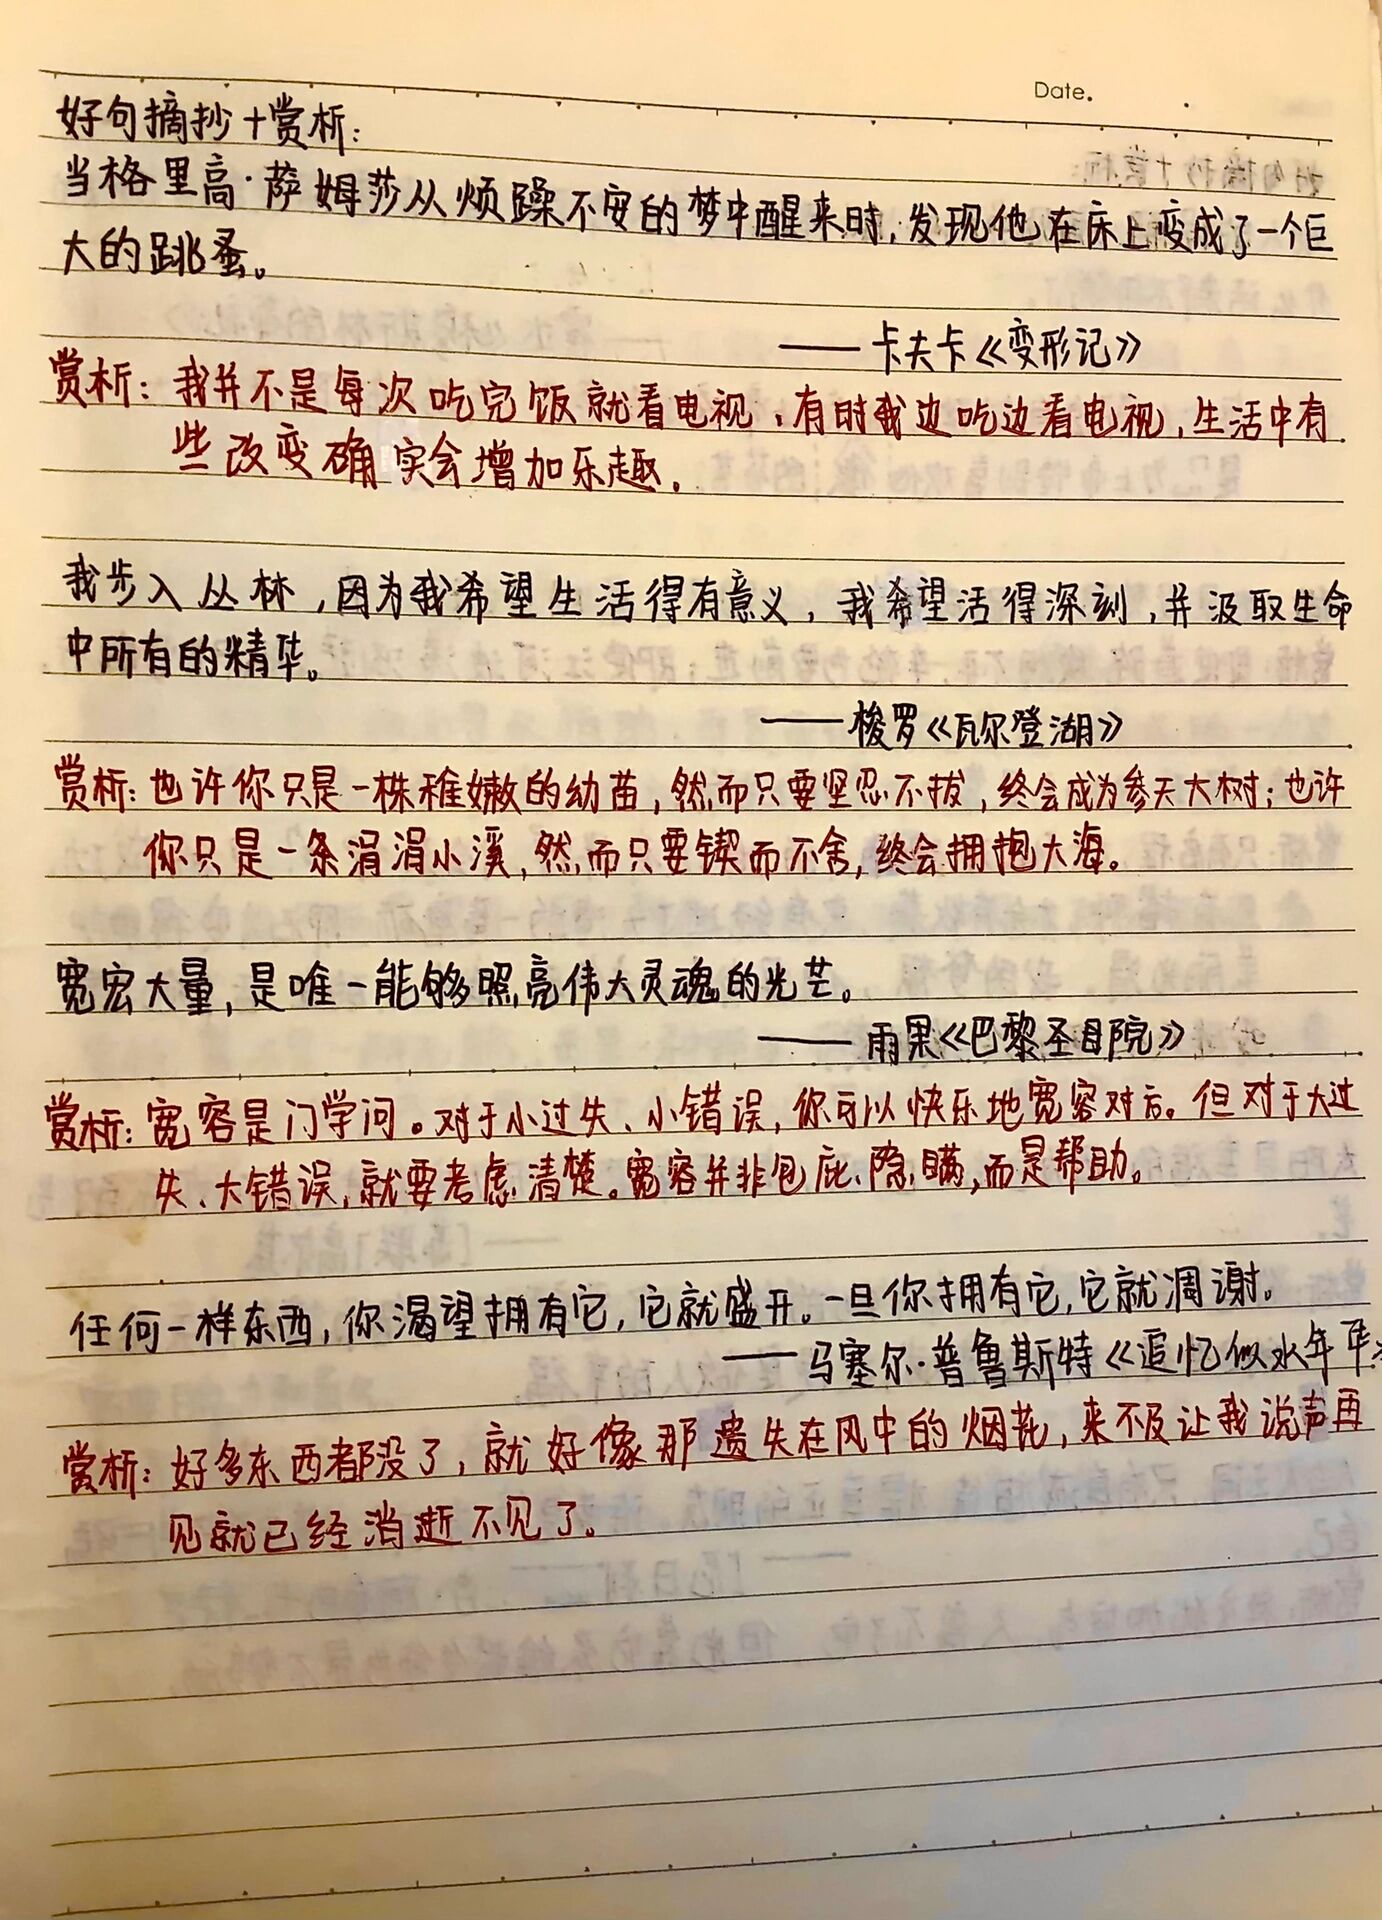 Date.
好句摘抄+赏析：
当格里高·萨姆莎从烦躁不安的梦中醒来时,发现他在床上变成了一个巨
大的跳蚤。
——卡夫卡《变形记》
赏析：我并不是每次吃完饭就看电视，有时我边吃边看电视,生活中有
些改变确实会增加乐趣.
我步入丛林,因为我希望生活得有意义,我希望活得深刻,并汲取生命
中所有的精华。
——梭罗《瓦尔登湖》
赏析:也许你只是一株稚嫩的幼苗,然而只要坚忍不拔,终会成为参天大树;也许
你只是一条涓涓小溪,然而只要锲而不舍,终会拥抱大海。
宽宏大量,是唯一能够照亮伟大灵魂的光芒。
——雨果《巴黎圣母院》
赏析:宽容是门学问。对于小过失、小错误,你可以快乐地宽容对方。但对于大过
失、大错误,就要考虑清楚。宽容并非包庇、隐瞒,而是帮助。
任何一样东西,你渴望拥有它,它就盛开。一旦你拥有它,它就凋谢。
——马塞尔·普鲁斯特《追忆似水年华》
赏析:好多东西都没了,就好像那遗失在风中的烟花,来不及让我说声再
见就已经消逝不见了。